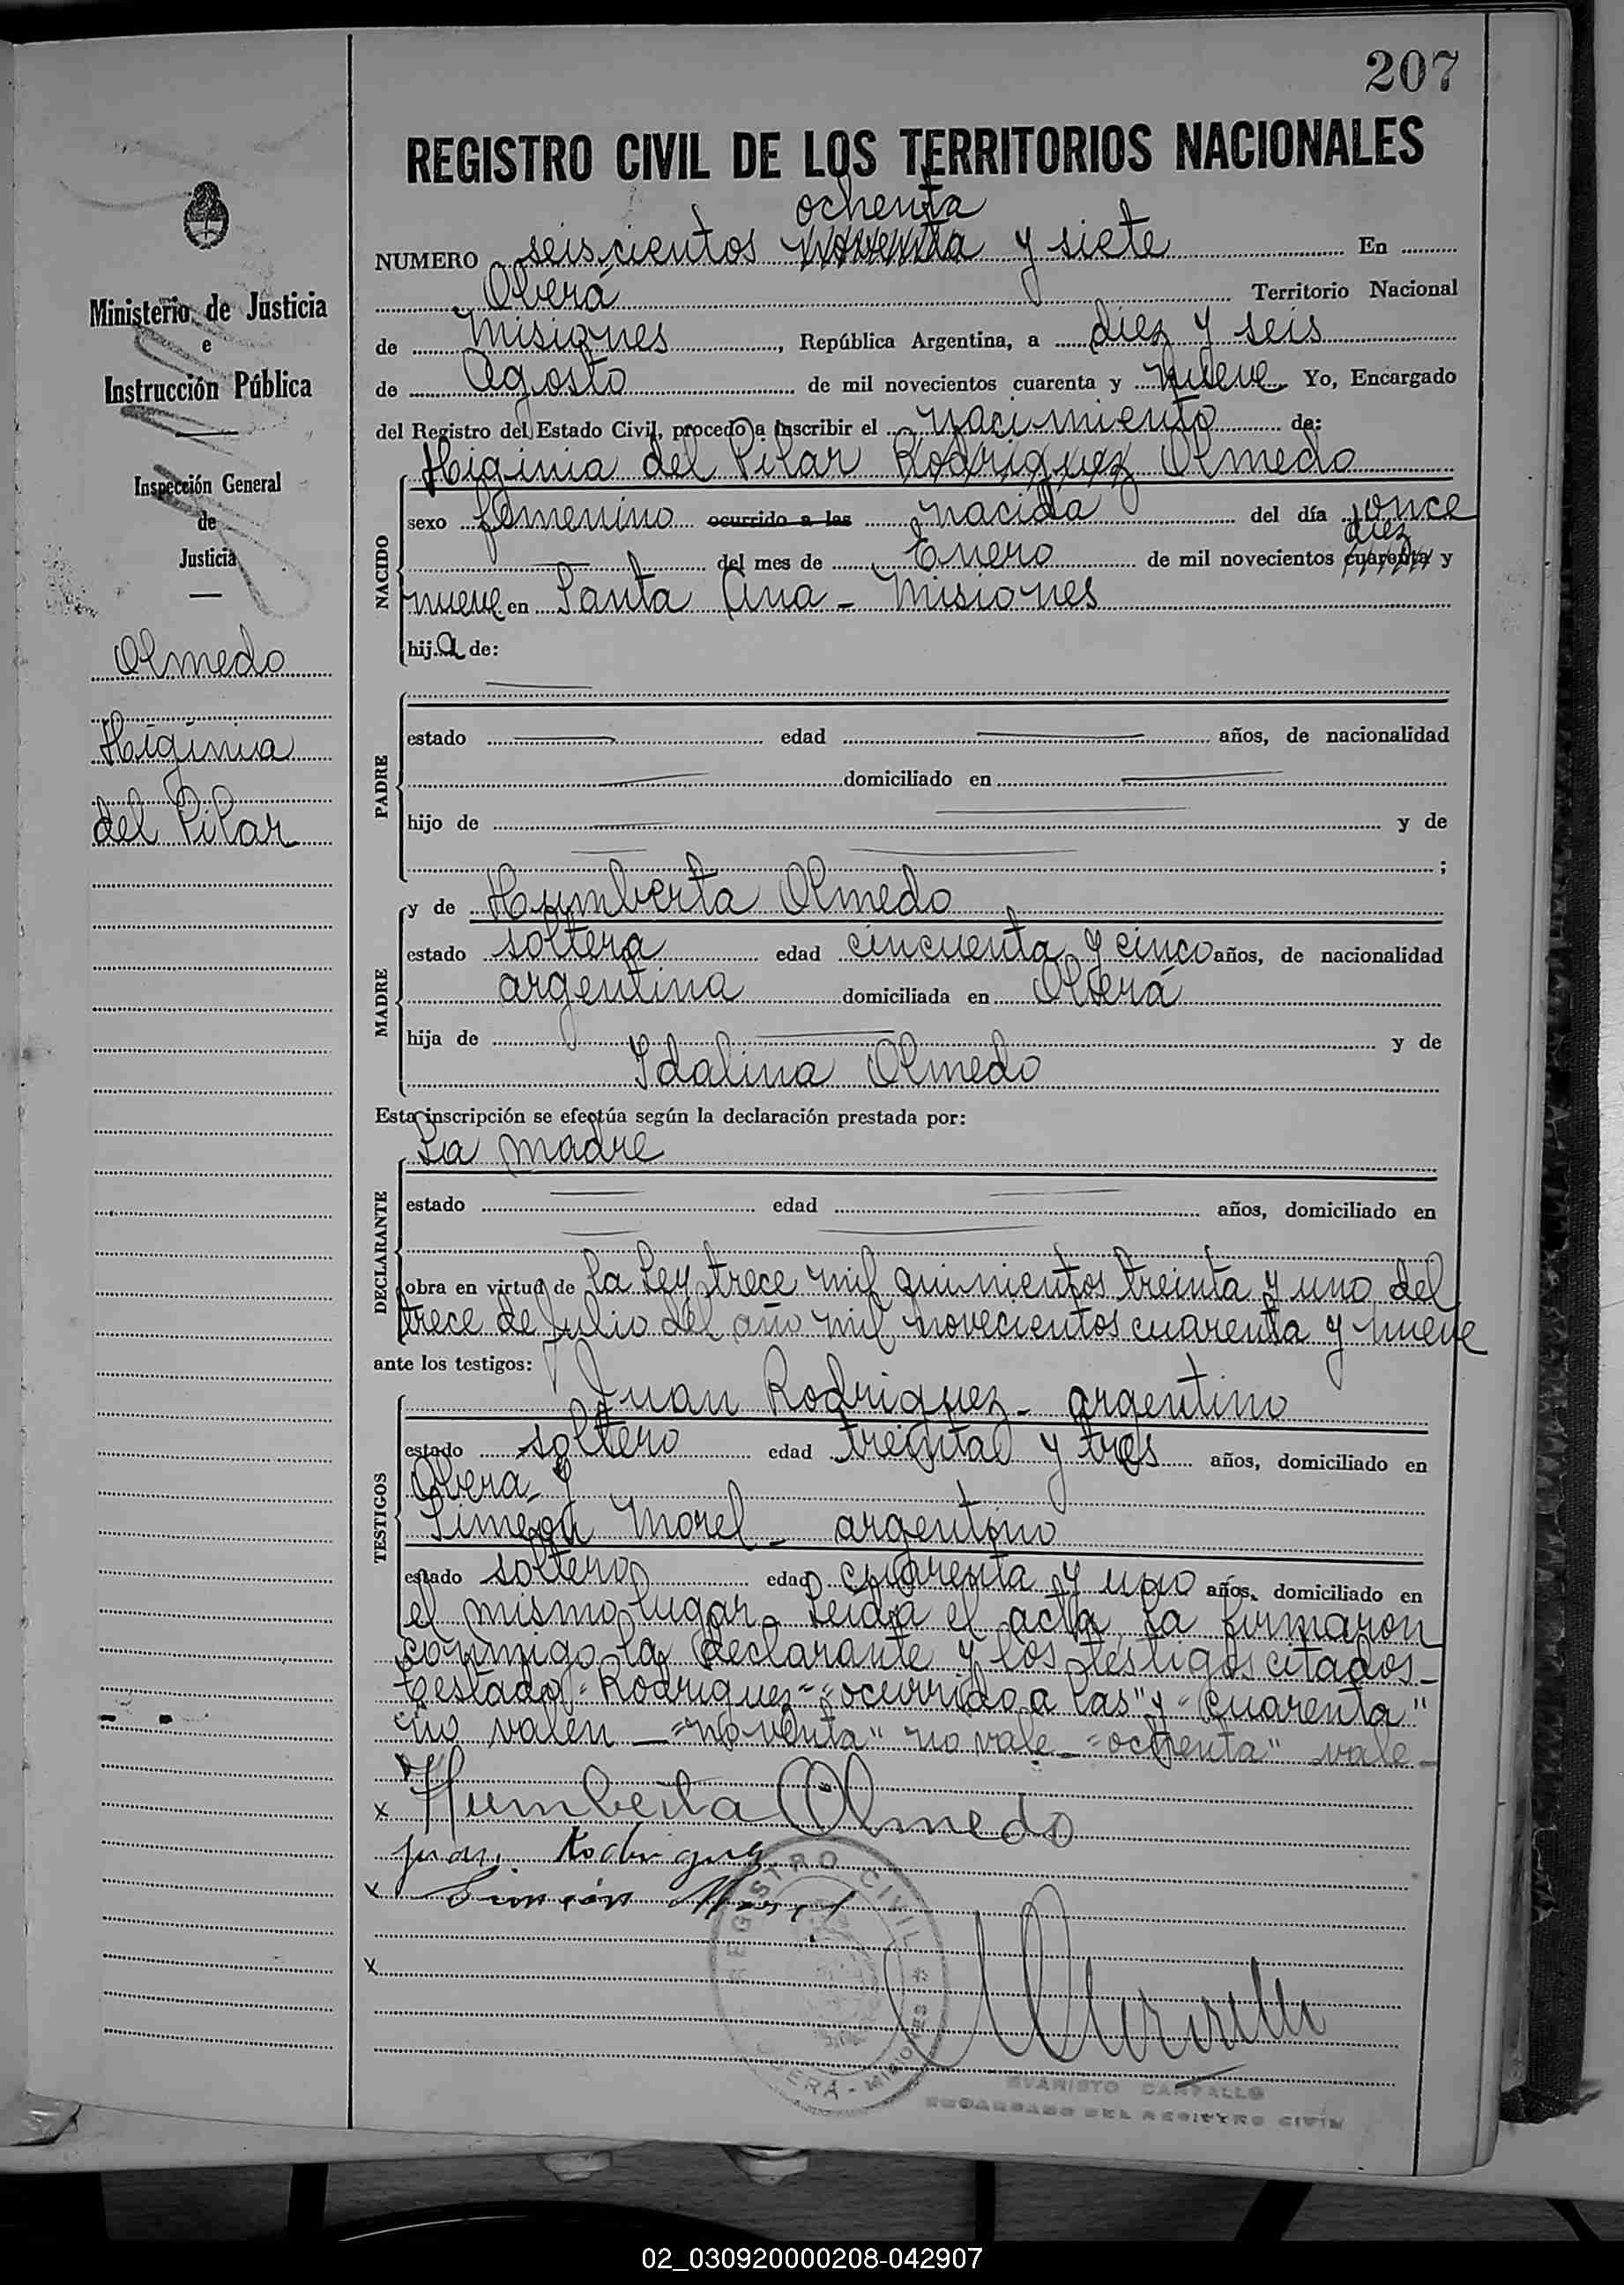 207
REGISTRO CIVIL DE LOS TERRITORIOS NACIONALES
ochenta
NUMERO seiscientos noventa y siete En
Oberá Territorio Nacional
de Misiones, República Argentina, a diez y seis
de Agosto de mil novecientos cuarenta y nueve Yo, Encargado
del Registro del Estado Civil, procedo a inscribir el nacimiento de:
Higinia del Pilar Rodriguez Olmedo
NACIDO
sexo femenino ocurrido a las nacida del día once
diez
del mes de Enero de mil novecientos cuarenta y
nueve en Santa Ana - Misiones
hija de:
PADRE
estado edad años, de nacionalidad
domiciliado en
hijo de y de
;
MADRE
y de Humberta Olmedo
estado soltera edad cincuenta y cinco años, de nacionalidad
argentina domiciliada en Oberá
hija de y de
Idalina Olmedo
Esta inscripción se efectúa según la declaración prestada por:
La madre
DECLARANTE
estado edad años, domiciliado en
obra en virtud de la Ley trece mil quinientos treinta y uno del
trece de Julio del año mil novecientos cuarenta y nueve
ante los testigos:
TESTIGOS
Juan Rodriguez - argentino
estado soltero edad treinta y tres años, domiciliado en
Obera - y
Simeón Morel - argentino
estado soltero edad cuarenta y uno años, domiciliado en
el mismo lugar - Leida el acta, la firmaron
conmigo la declarante y los testigos citados -
Testado - "Rodriguez" - "ocurrido a las" y "cuarenta"
no valen - "noventa" no vale - "ochenta" vale -
x Humberta Olmedo
Juan Rodriguez
x Simeón Morel
x
REGISTRO CIVIL
OBERÁ - MISIONES
EVARISTO CARVALLO
ENCARGADO DEL REGISTRO CIVIL
Ministerio de Justicia
e
Instrucción Pública
Inspección General
de
Justicia
Olmedo
Higinia
del Pilar
02_030920000208-042907